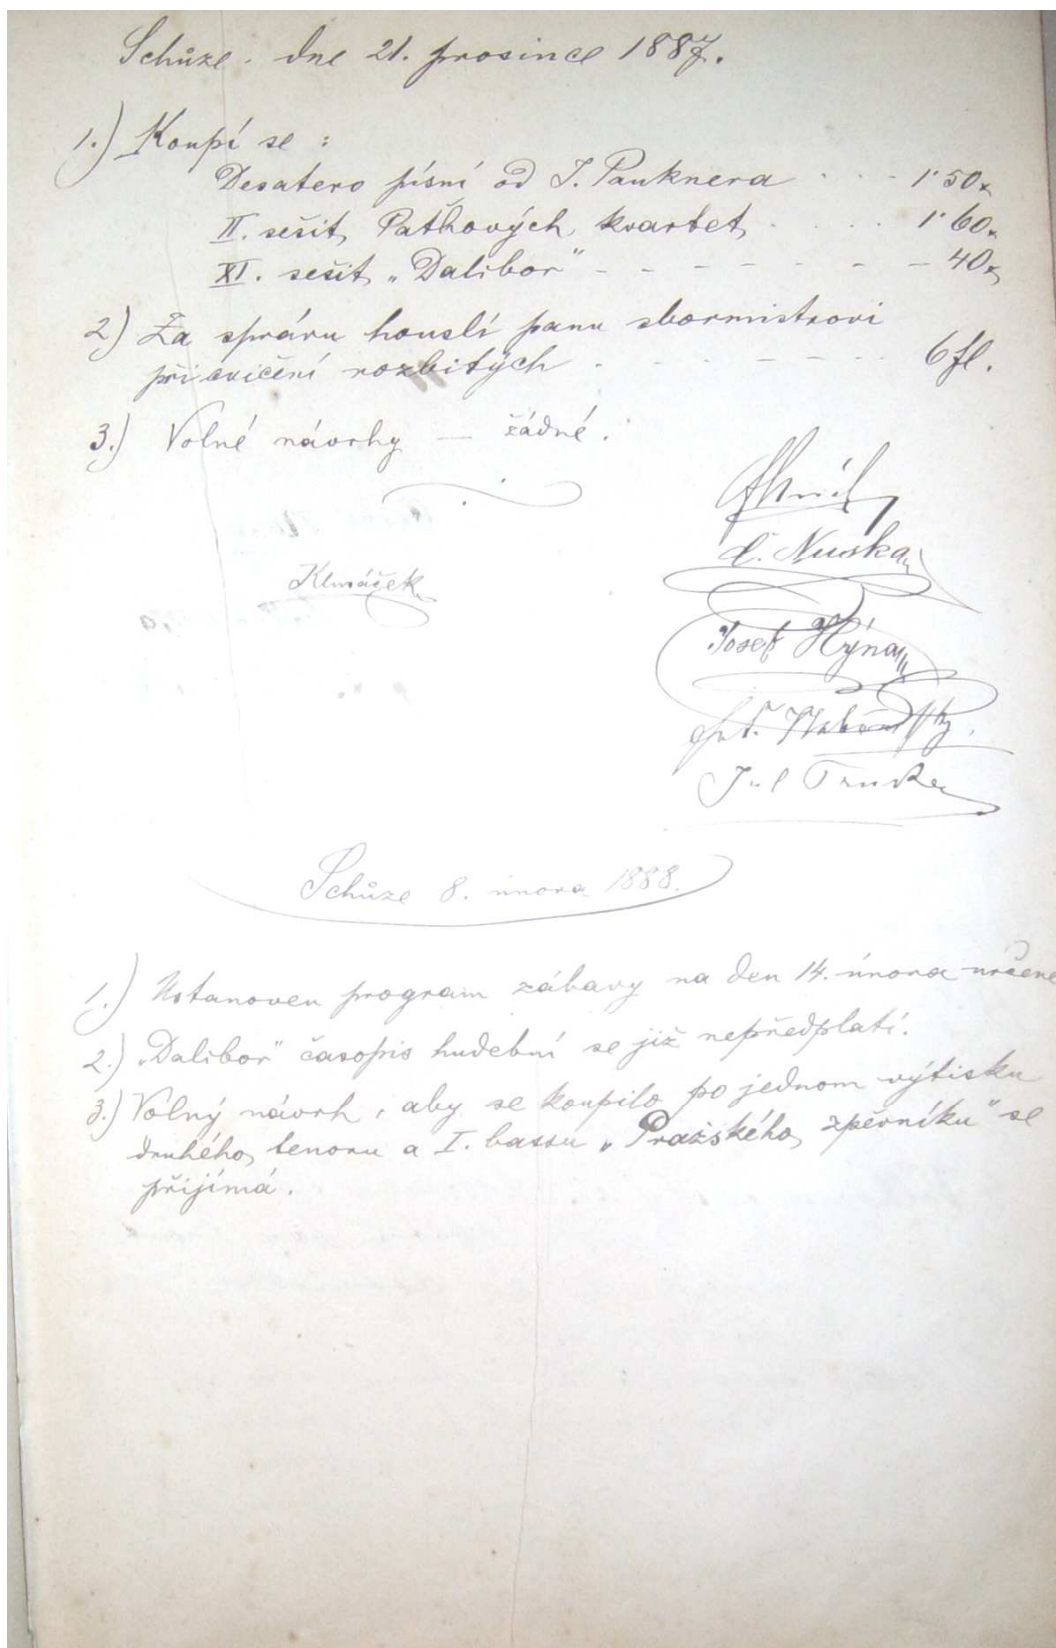 Schůze dne 21. prosince 1887.
1.) Koupí se :
Desatero písní od J. Pauknera - - - 1·50x
II. sešit Paťhových kvartet - - - - 1·60x
XI. sešit „Dalibor" - - - - - - - 40x
2) Za správu houslí panu sbormistrovi
při cvičení rozbitých - - - - - - - 6 fl.
3.) Volné návrhy — žádné.
Č. Nuska
Klmáček
Josef Hýna
Jul Truska
Schůze 8. února 1888.
1.) Ustanoven program zábavy na den 14. února určené
2.) „Dalibor" časopis hudební se již nepředplatí.
3.) Volný návrh, aby se koupilo po jednom výtisku
druhého tenoru a I. bassu „Pražského zpěvníku" se
přijímá.